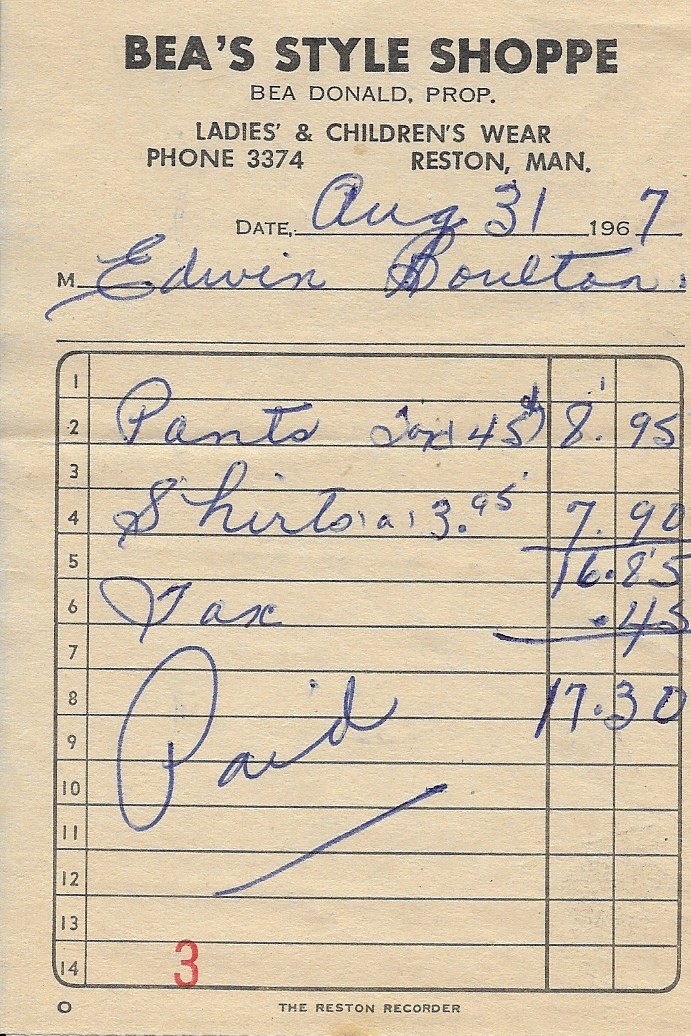 BEA'S STYLE SHOPPE
BEA DONALD, PROP.
LADIES' & CHILDREN'S WEAR
PHONE 3374 RESTON, MAN.
DATE, Aug 31 1967
M Edwin Boulton.
1
2 Pants Tax 45¢ 8.95
3
4 Shirts a 3.95 7.90
5 16.85
6 Tax .45
7
8 Paid 17.30
9
10
11
12
13
14 3
O THE RESTON RECORDER